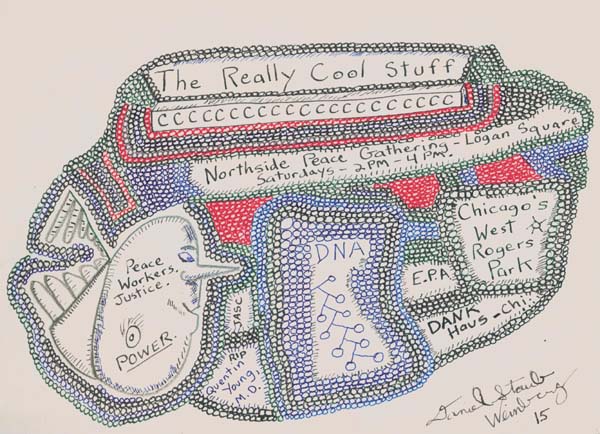 The Really Cool Stuff
CCCCCCCCCCCCCCCCCCCC
Northside Peace Gathering - Logan Square
Saturdays - 2PM - 4PM.
Chicago's
West
Rogers
Park
DNA
Peace
Workers.
Justice.
POWER.
E.P.A
JASC
DANK
Haus - Chi.
RIP
Quentin
Young
M.D.
Daniel Staub
Weinberg
15